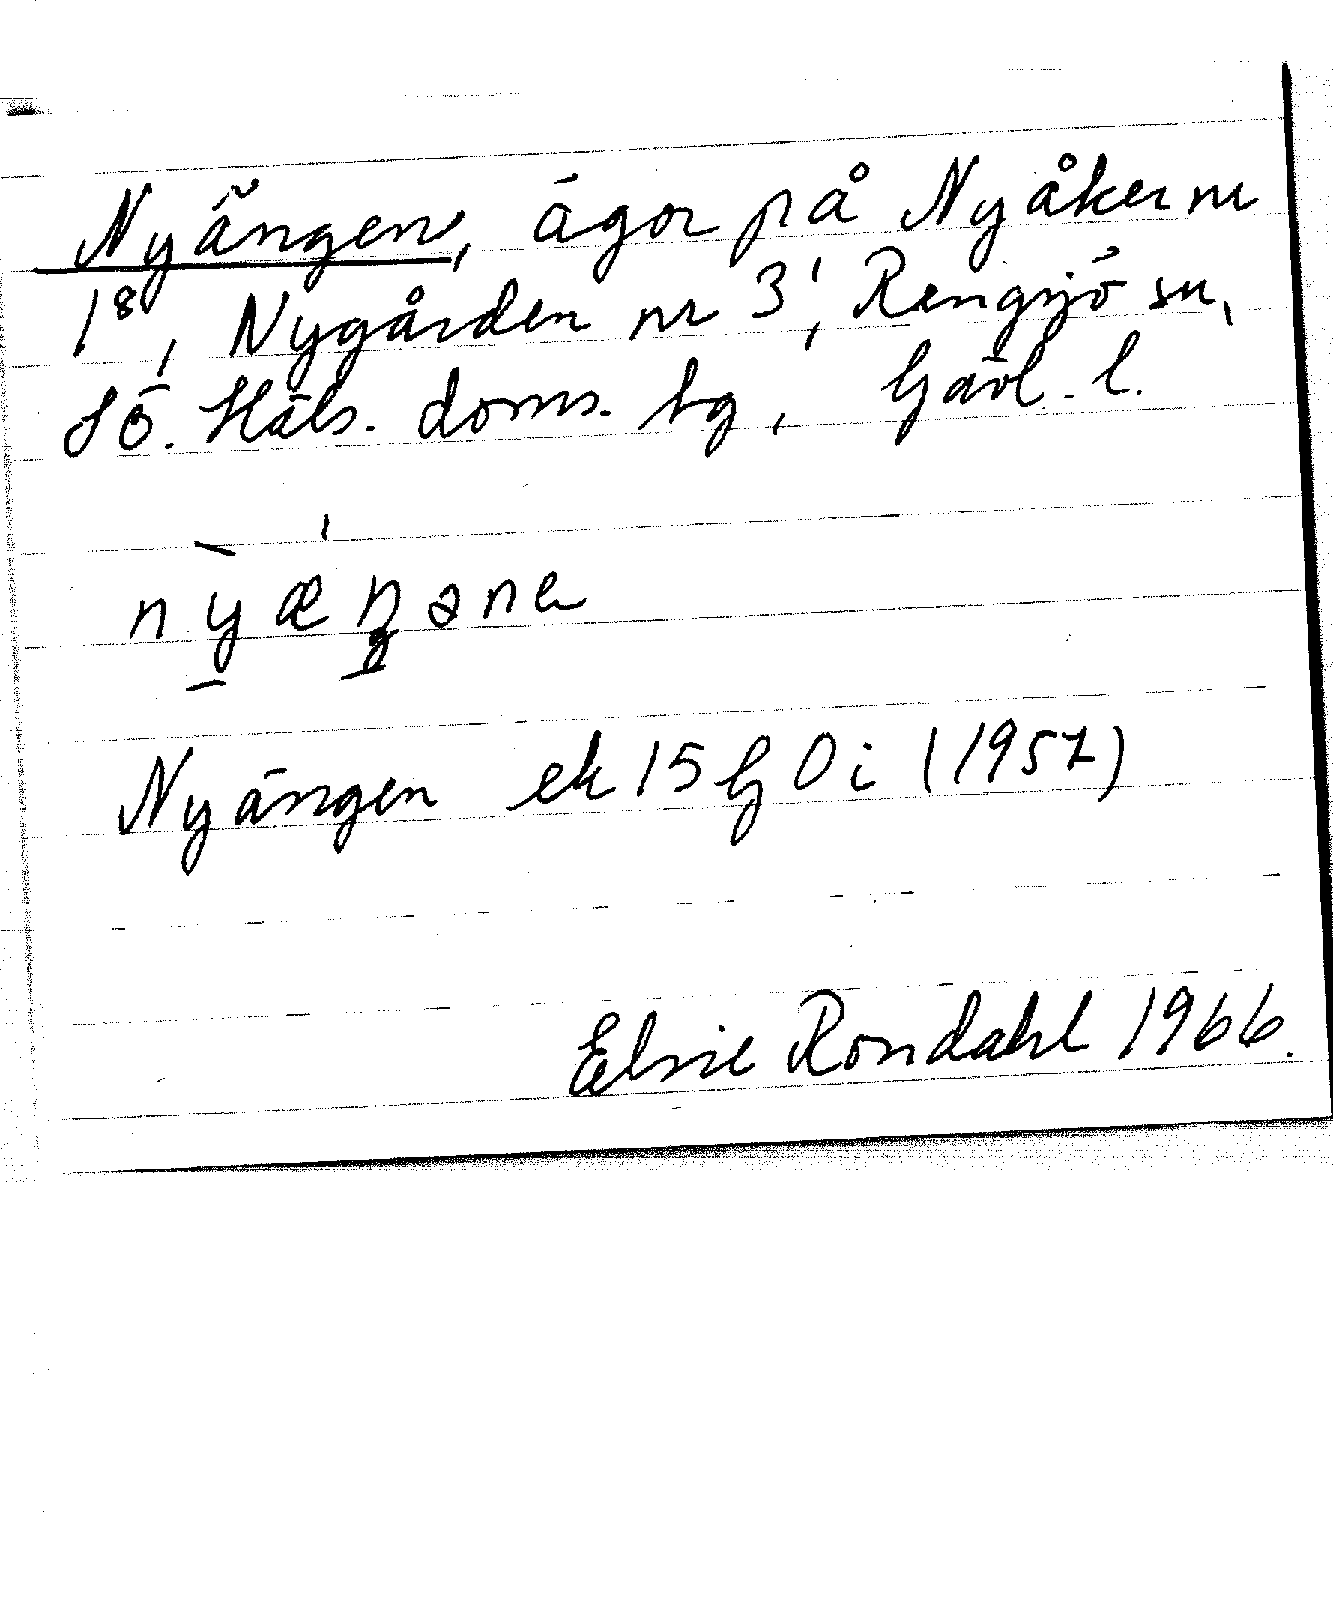 Nyängen, ägor på Nyåker nr
1⁸, Nygården nr 3¹, Rengsjö sn,
Sö. Häls. doms. tg, Gävl. l.
nỳæ'ŋəna
Nyängen ek 15 G 0 i (1957)
Elsie Rondahl 1966.